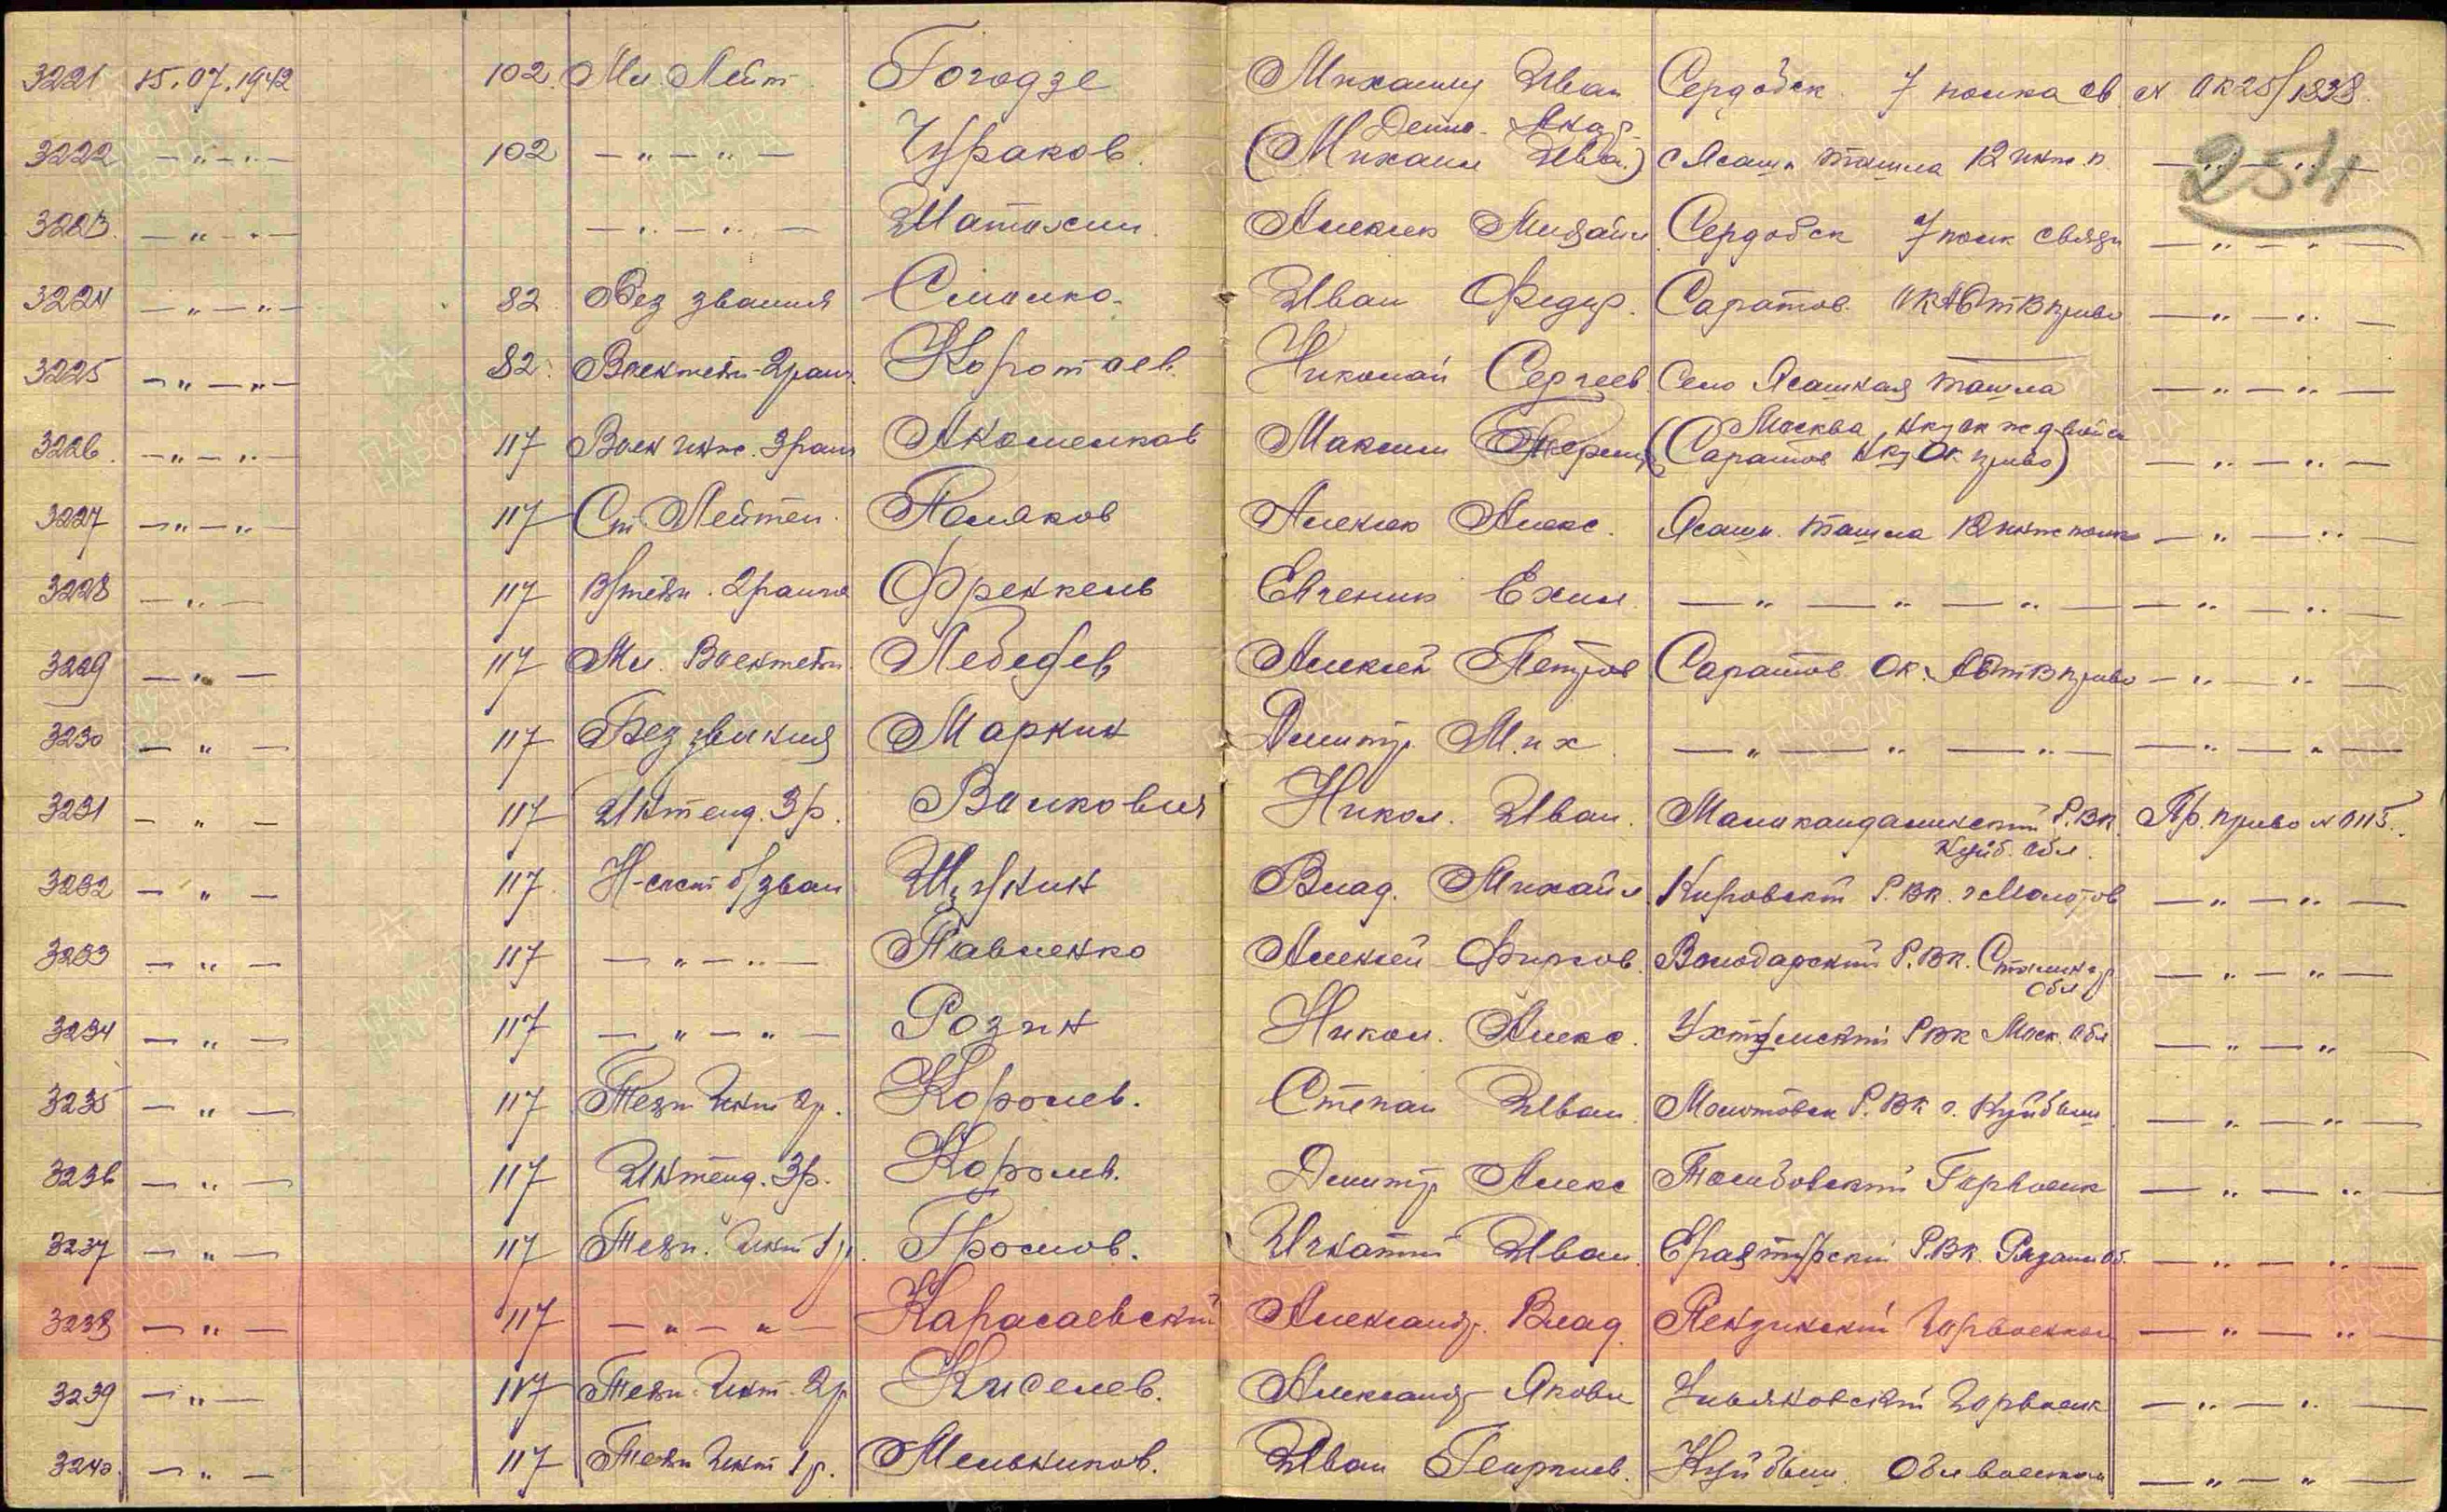 3221 15.07.1942 102 Мл. Лейт. Гогодзе Михаилу Иван Сердобск. 7 полка св N ОК25/1838.
Демо. Акад.
3222 — " — " — 102 — " — " — Чураков. (Михаил Ива.) с Ясашн Ташла 12 инж. п. — " — " —
254
3223. — " — " — — " — " — Шатохин. Алексей Михайл. Сердобск 7 полк связи — " — " —
3224 — " — " — 82 Без звания Сманко. Иван Федор. Саратов. ОКАБТВ приво — " — " —
3225 — " — " — 82. Воентехн-2ранг. Коротаев. Николай Сергеев Село Ясашная Ташла — " — " —
Москва, Нкуок ж д войск
3226. — " — " — 117 Воен инж. 3ранг Максим (Саратов Нку Ок приво) — " — " —
3227 — " — " — 117 Ст. Лейтен. Поляков Алексей Алекс. Ясашн. Ташла 12 инж полк — " — " —
3228 — " — 117 В/техн. 2ранга Френкель Евгений Ехил. — " — " — " — " — " —
3229 — " — 117 Мл. Воентехн. Лебедев Алексей Петров Саратов Ок. АБТВ приво — " — " —
3230 — " — 117 Без звания Маркин Дмитр. Мих. — " — " — " — — " — " —
3231 — " — 117 Интенд. 3р. Николя. Иван. Малокандалинский Р.ВК. Пр. приво N 0115.
Куйб. Обл.
3232 — " — 117. Н-сост б/зван Шуркин Влад. Михайл. Кировский Р.ВК. г Молотов — " — " —
3233 — " — 117 — " — " — Павленко Алексей Фирсов. Володарский Р.ВК. Сталингр
Обл — " — " —
3234 — " — 117 — " — " — Розин Никол. Алекс. Ухтомский РВК Моск. Обл — " — " —
3235 — " — 117 Техн Инт 2р. Королев. Степан Иван. Молотовск Р.ВК г. Куйбыш — " — " —
3236 — " — 117 Интенд. 3р. Королев. Дмитр Алекс Тамбовский Горвоенк — " — " —
3237 — " — 117 Техн. Инт 1р. Громов. Игнатий Иван. Ерахтурский Р.ВК. Рязан Об. — " — " —
3238 — " — 117 — " — " — Карасаевский Александр. Влад. Пензинский Горвоенком — " — " —
3239 — " — 117 Техн. Инт. 2р Киселев. Александр Яковл Ульяновский Горвоенк — " — " —
3240. — " — 117 Техн Инт 1р. Мельников. Иван Георгиев. Куйбыш. Облвоенком — " — " —